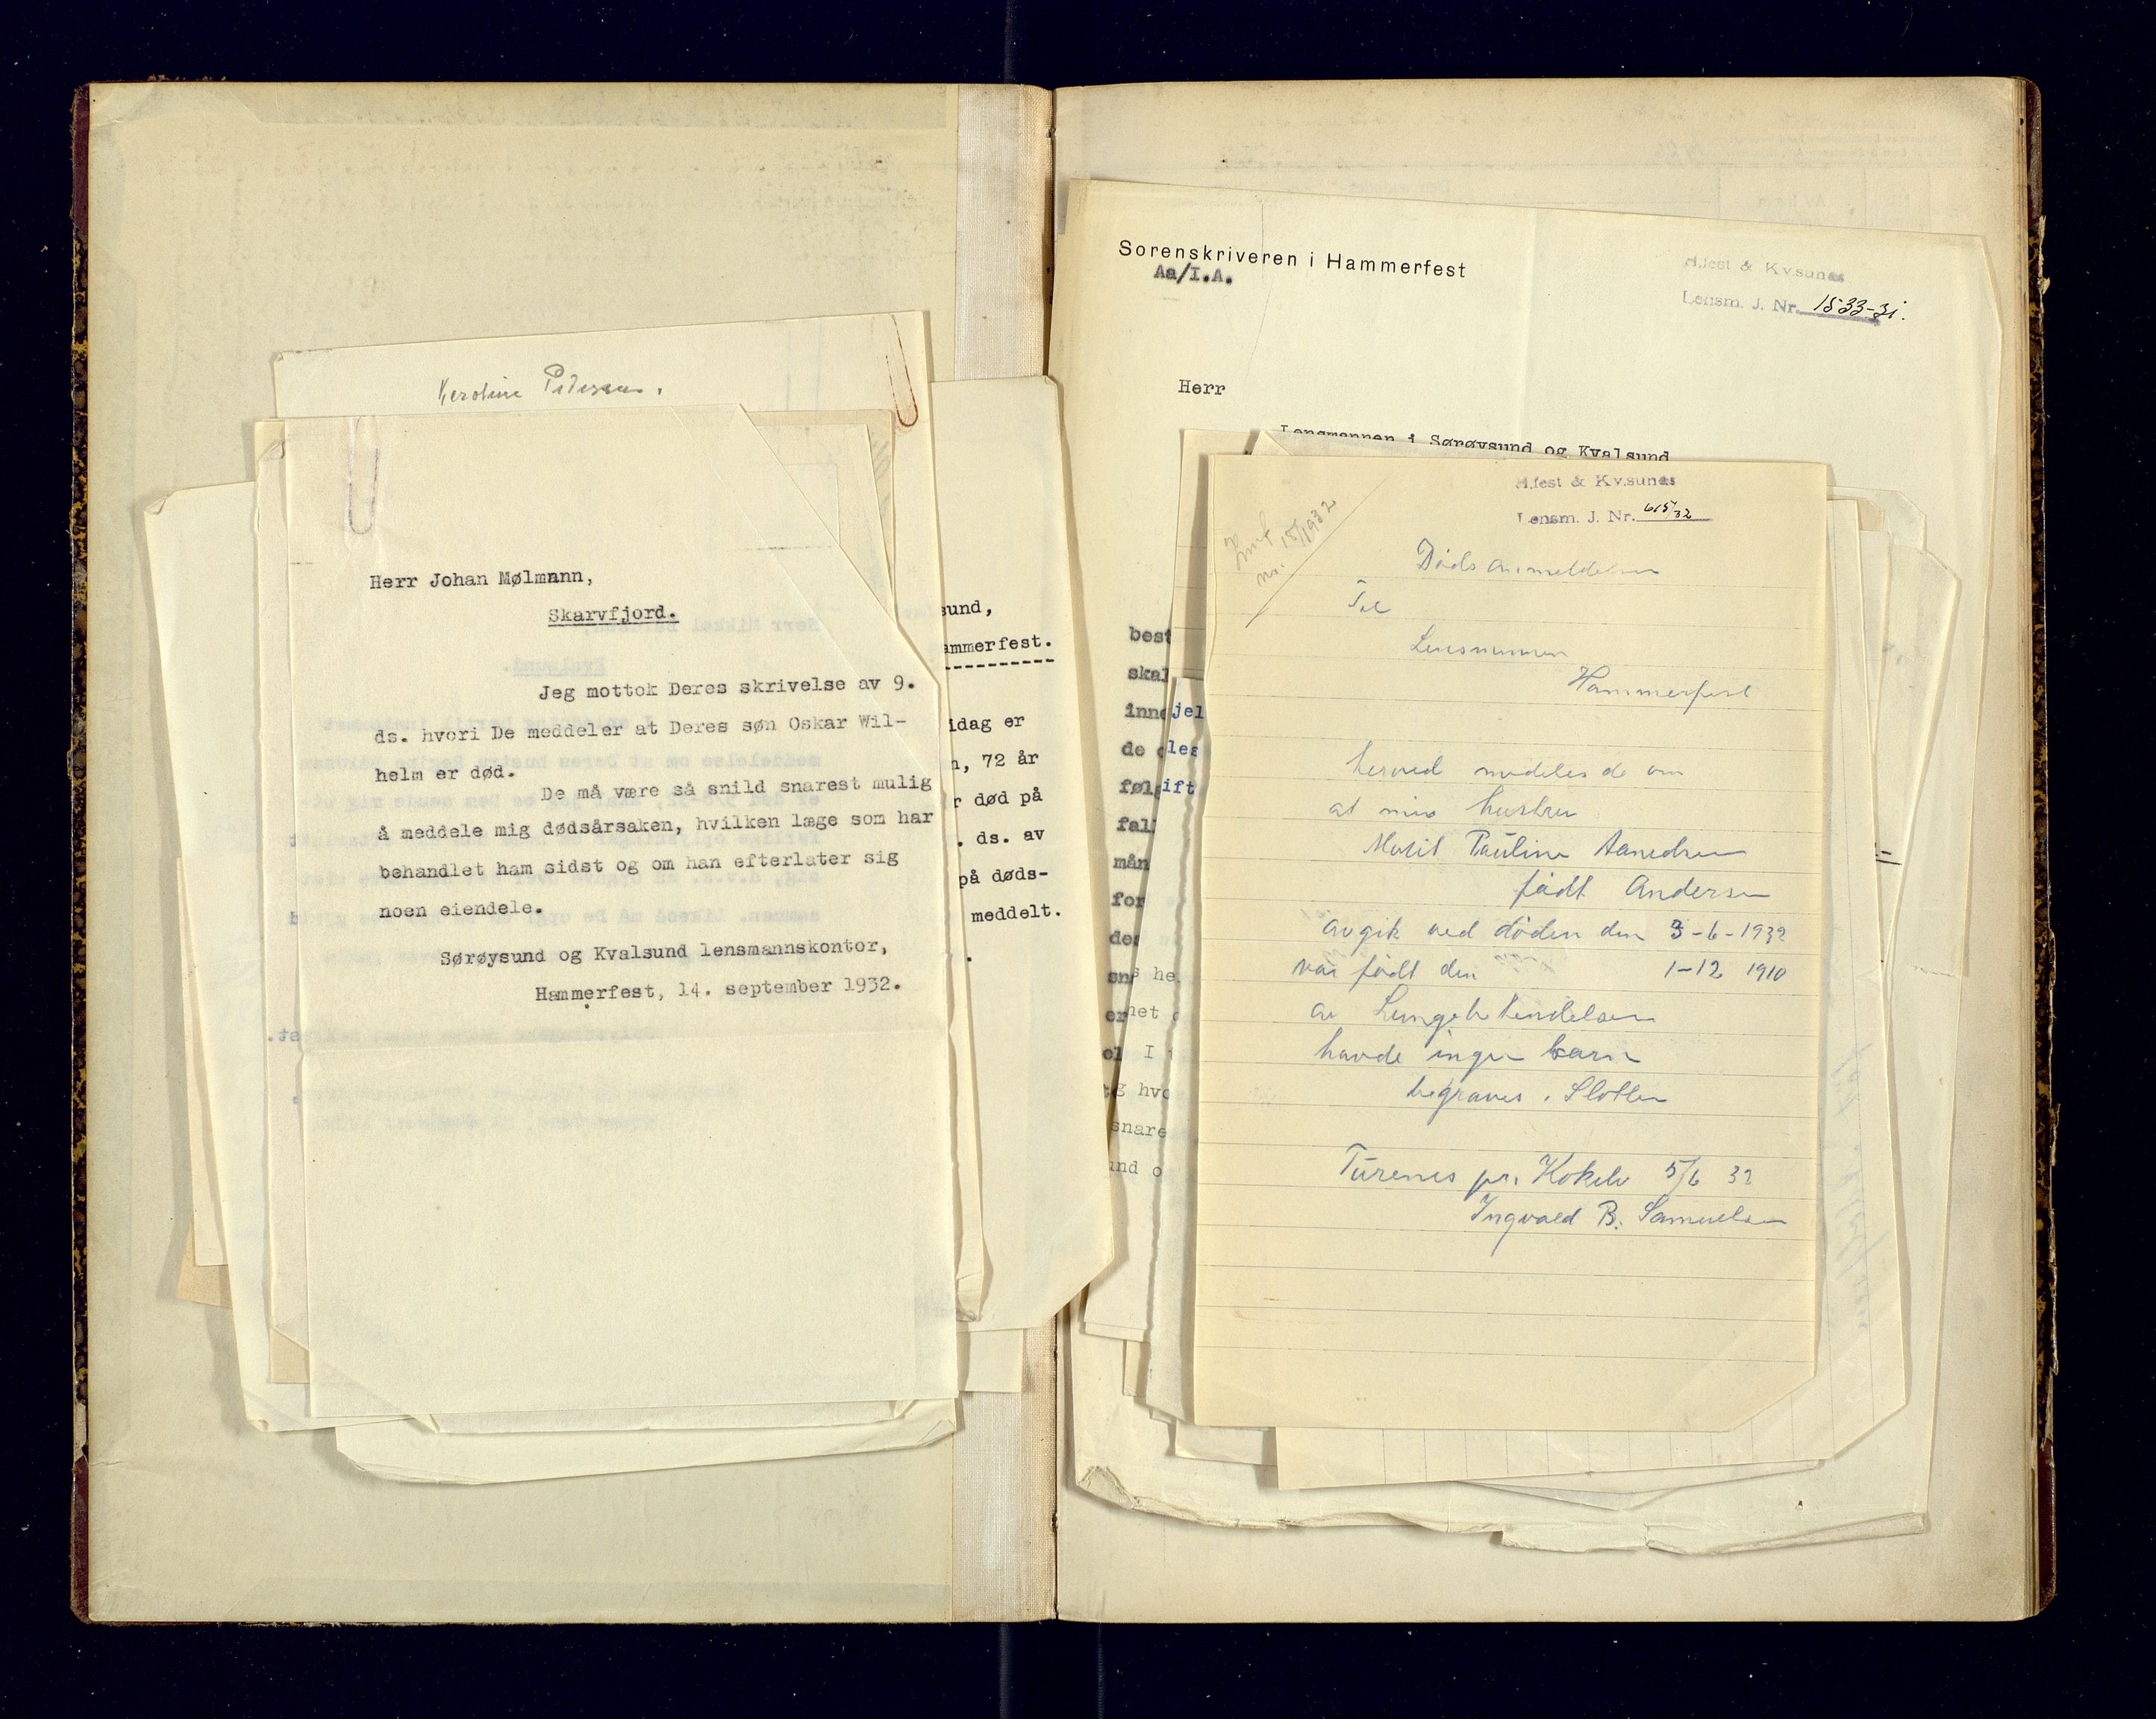 Keroline Pedersen.
Herr Johan Mølmann,
Skarvfjord.
Jeg mottok Deres skrivelse av 9.
ds. hvori De meddeler at Deres søn Oskar Wil-
helm er død.
De må være så snild snarest mulig
å meddele mig dødsårsaken, hvilken læge som har
behandlet ham sidst og om han efterlater sig
noen eiendele.
Sørøysund og Kvalsund lensmannskontor,
Hammerfest, 14. september 1932.
sund,
ammerfest.
idag er
n, 72 år
r død på
. ds. av
på døds-
meddelt.
Sorenskriveren i Hammerfest
Aa/I.A.
H.fest & Kv.sunds
Lensm. J. Nr. 1533-31.
Herr
Lensmannen i Sørøysund og Kvalsund
best
skal
inne
de
følg
fall
mån
for
der
jel
les
ift
s he
het
I
g hvo
snare
und o
H.fest & Kv.sunds
Lensm. J. Nr. 615/32
nr. 15/1932
Dødsanmeldelse
Til
Lensmannen
Hammerfest
herved meddeles de om
at min hustru
Marit Pauline
født Andersen
avgik ved døden den 3-6-1932
var født den 1-12 1910
av Lungebetendelsen
havde ingen barn
begraves i Slotten
pr. Kokelv 5/6 32
Ingvald B. Samuelsen